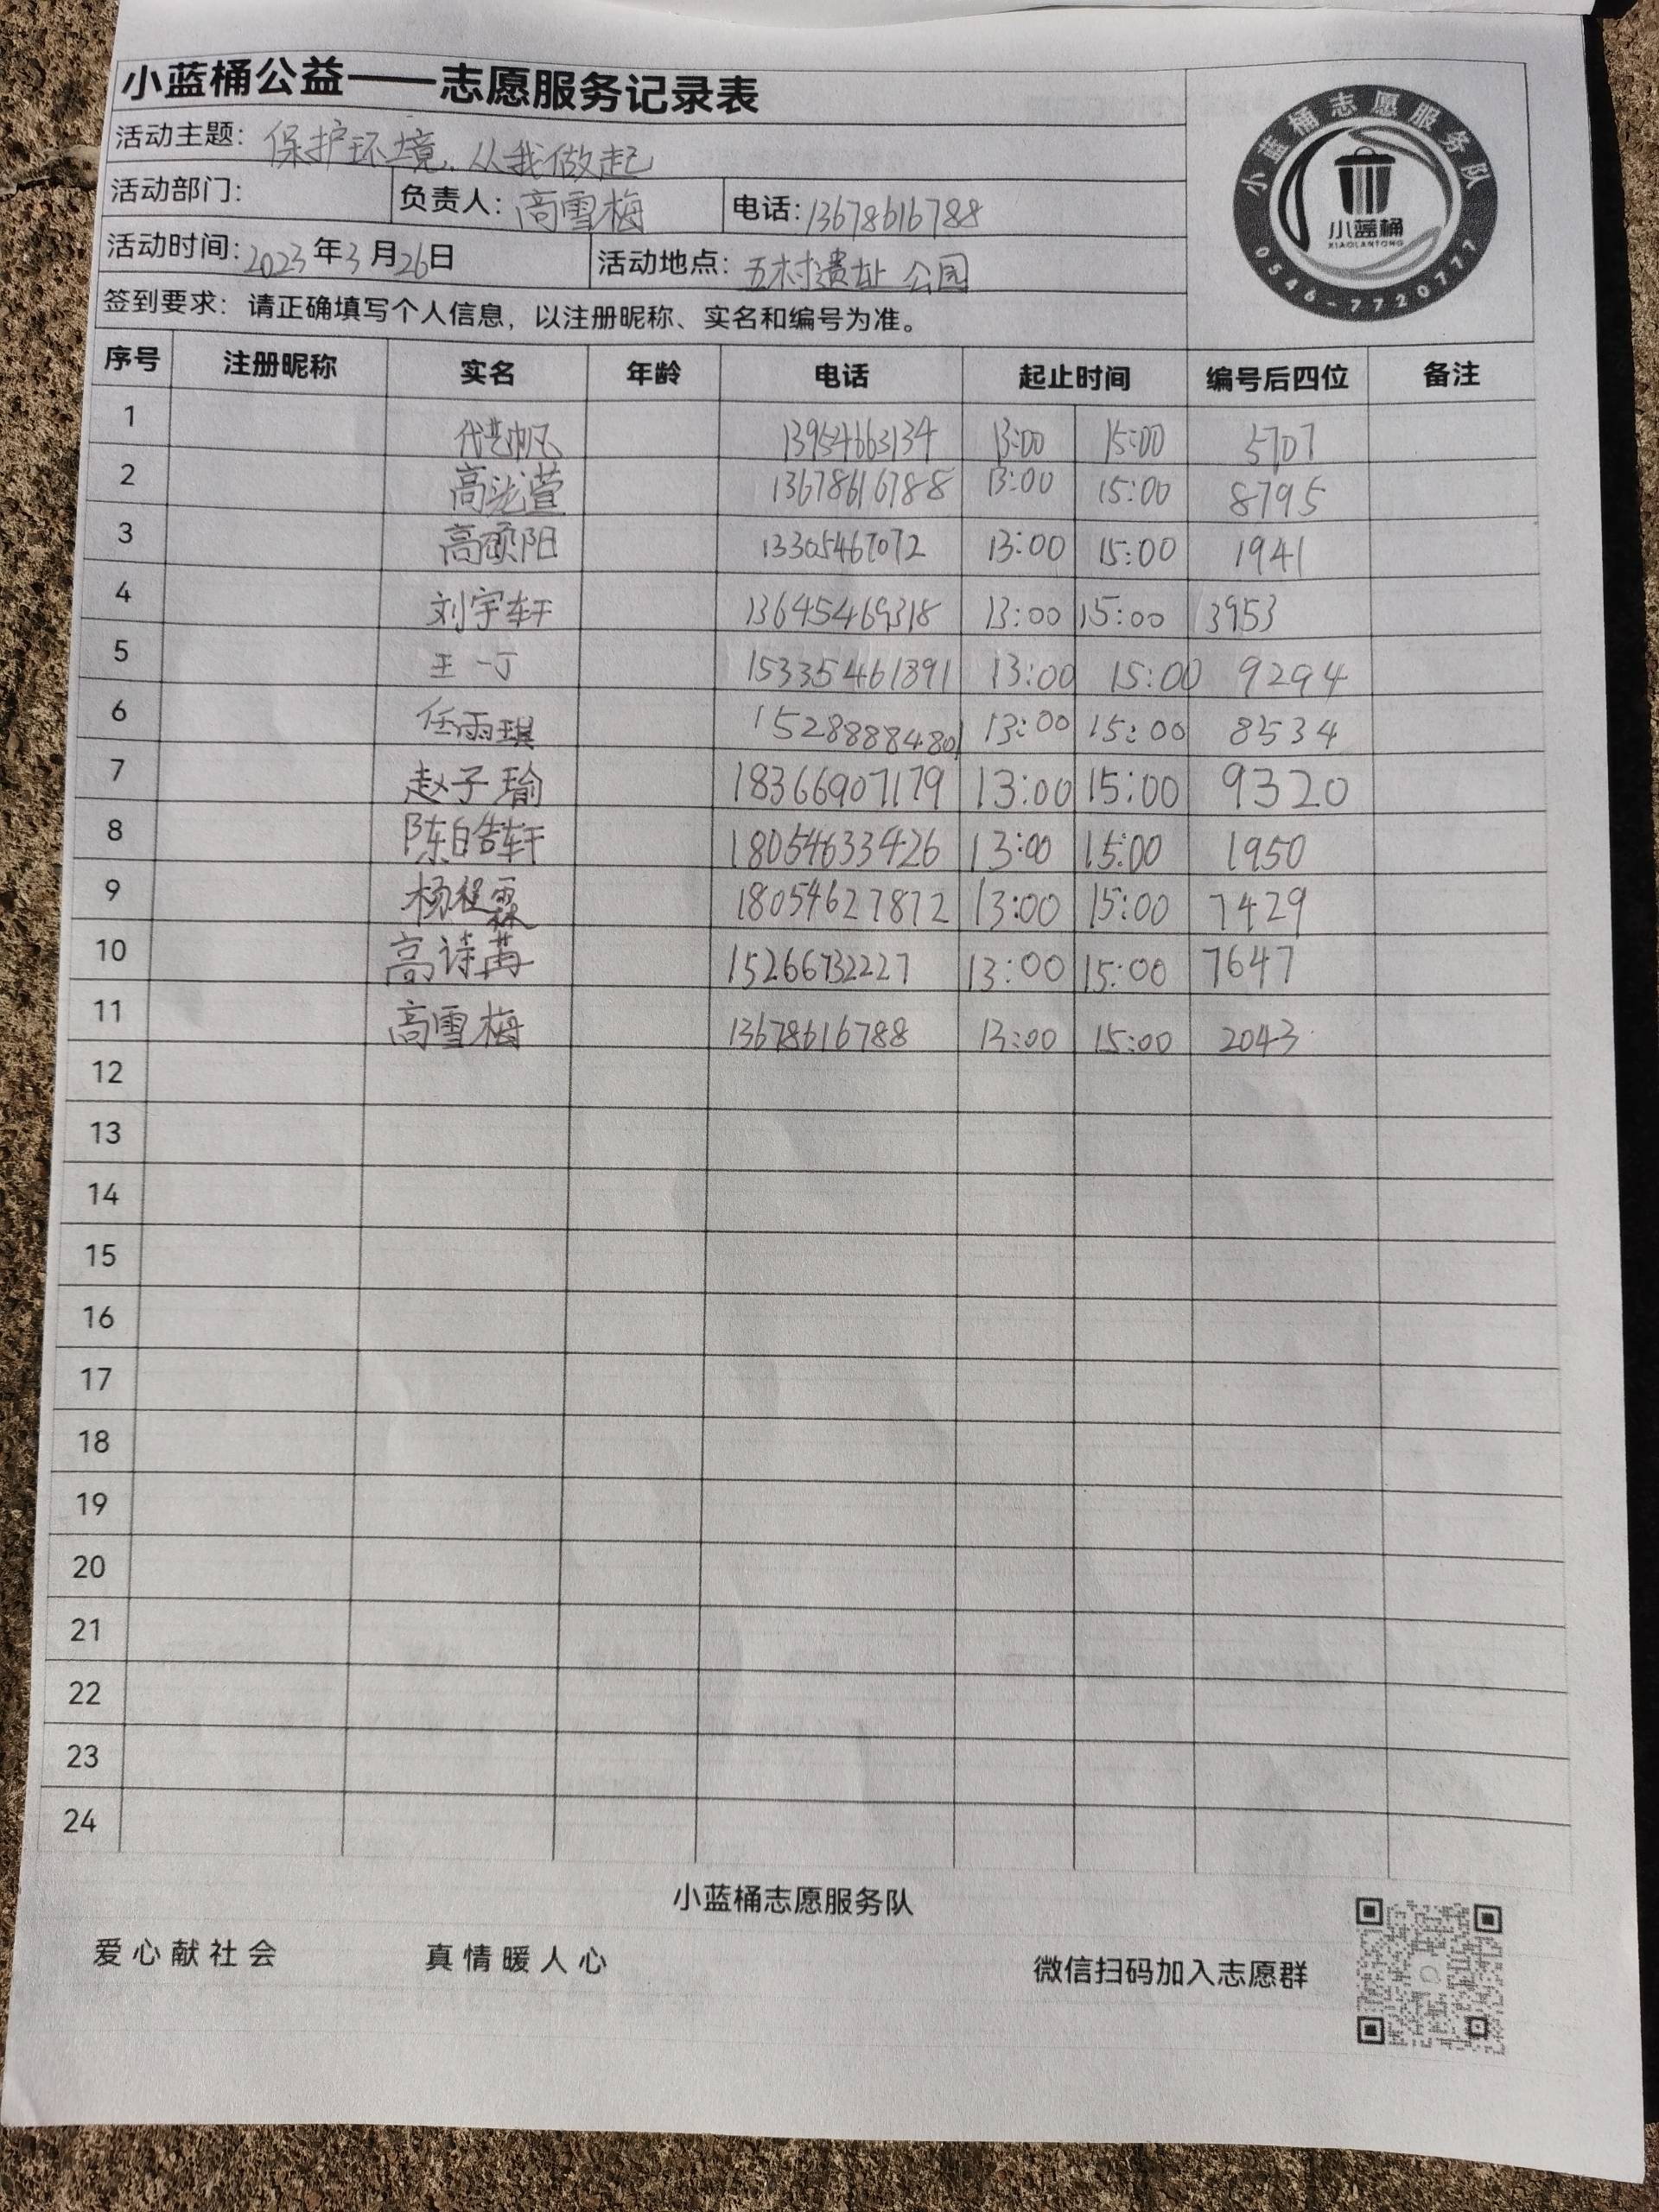 小蓝桶公益——志愿服务记录表
活动主题: 保护环境,从我做起
活动部门: 负责人: 高雪梅 电话: 13678616788
活动时间: 2023年3月26日 活动地点: 五村遗址公园
签到要求: 请正确填写个人信息, 以注册昵称、实名和编号为准。
小蓝桶志愿服务队
小蓝桶
XIAOLANTONG
0546-7720777
序号 注册昵称 实名 年龄 电话 起止时间 编号后四位 备注
1 代艺帆 13954663134 13:00 15:00 5707
2 高光萱 13678616788 13:00 15:00 8795
3 高硕阳 13305467072 13:00 15:00 1941
4 刘宇轩 13645469318 13:00 15:00 3953
5 王一丁 15335461891 13:00 15:00 9294
6 任雨琪 15288884801 13:00 15:00 8534
7 赵子瑜 18366907179 13:00 15:00 9320
8 陈皓轩 18054633426 13:00 15:00 1950
9 杨程霖 18054627872 13:00 15:00 7429
10 高诗苒 15266732227 13:00 15:00 7647
11 高雪梅 13678616788 13:00 15:00 2043
12
13
14
15
16
17
18
19
20
21
22
23
24
小蓝桶志愿服务队
爱心献社会 真情暖人心 微信扫码加入志愿群